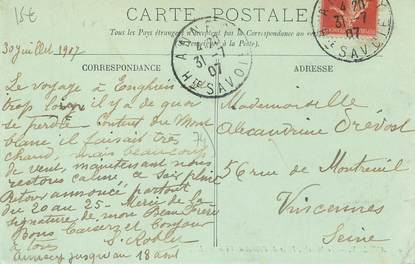 15€
CARTE POSTALE
Tous les Pays étrangers n'acceptent pas la Correspondance au
(Se renseigner à la Poste).
4-20
31-7
07
Hte SAVOIE
4-20
31-7
07
Hte SAVOIE
30 juillet 1907
CORRESPONDANCE
ADRESSE
Le voyage à Enghien
trop long il y a de quoi
se perdre Contents du Mont
blanc, il faisait très
chaud, mais beaucoup
de vent, maintenant nous
restons calme, ce soir pluie
Retour annoncé partout
du 20 au 25 - Merci de la
signature de mon Beau Frère
Bons baisers et bonjour
à tous
Annecy jusqu'au 18 août
Mademoiselle
Alexandrine Prevost
56 rue de Montreuil
Vincennes
Seine